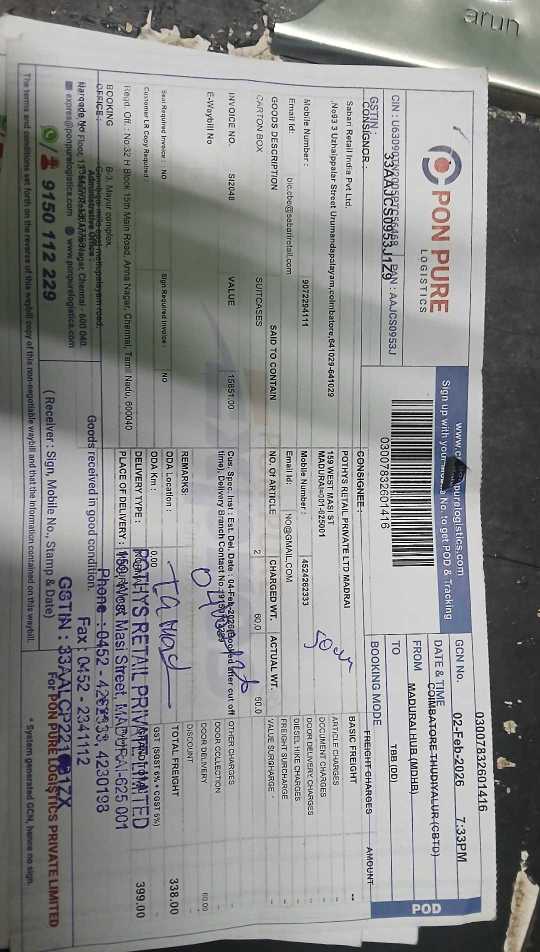 arun
PON PURE
LOGISTICS
www.c purelogistics.com
Sign up with your a No. to get POD & Tracking
03007832601416
GCN No. 03007832601416
DATE & TIME 02-Feb-2026 7:33PM
FROM COIMBATORE-THUDIYALUR (CBTD)
TO MADURAI HUB (MDHB)
BOOKING MODE TBB (DD)
POD
CIN : PAN : AAJCS0953J
GSTIN : 33AAJCS0953J1Z9
CONSIGNOR:
Sabari Retail India Pvt Ltd.
,No93 3 Uzhaippalar Street Urumandapalayam,coimbatore,641029-641029
Mobile Number : 9072294111
Email Id: bic.cbe@sabariretail.com
CONSIGNEE :
POTHYS RETAIL PRIVATE LTD MADRAI
159 WEST MASI ST
MADURAI 625001
Mobile Number : 4524262333
Email Id: NO@GMAIL.COM
GOODS DESCRIPTION SAID TO CONTAIN NO. OF ARTICLE CHARGED WT. ACTUAL WT.
CARTON BOX SUITCASES 2 60.0 60.0
INVOICE NO. SI2048 VALUE 15851.00
E-Waybill No
Cus. Spec. Inst : Est. Del. Date : 04-Feb-2026 after cut off
time), Delivery Branch Contact No.
REMARKS:
Seal Required Invoice : NO Sign Required Invoice : NO
Customer LR Copy Required :
ODA Location :
ODA Km : 0.00
DELIVERY TYPE :
PLACE OF DELIVERY :
FREIGHT CHARGES AMOUNT
BASIC FREIGHT --
ARTICLE CHARGES -
DOCUMENT CHARGES -
DOOR DELIVERY CHARGES -
DIESEL HIKE CHARGES -
FREIGHT SURCHARGE -
VALUE SURCHARGE -
OTHER CHARGES -
DOOR COLLECTION -
DOOR DELIVERY 60.00
DISCOUNT -
TOTAL FREIGHT 338.00
GST (SGST 6% + CGST 6%)
399.00
Regd. Off. : No.32 H Block 15th Main Road, Anna Nagar, Chennai, Tamil Nadu, 600040
BOOKING
OFFICE : B-3, Mayur complex,
Administrative Office :
express@ponpurelogistics.com www.ponpurelogistics.com
9150 112 229
Goods received in good condition.
( Receiver : Sign, Mobile No., Stamp & Date)
POTHYS RETAIL PRIVATE LIMITED
159, West Masi Street, MADURAI-625 001
Phone : 0452 - 4262333, 4230193
Fax : 0452 - 2341112
For PON PURE LOGISTICS PRIVATE LIMITED
The terms and conditions set forth on the reverse of this waybill copy of this non-negotiable waybill and that the information contained on this waybill.
* System generated GCN, hence no sign.